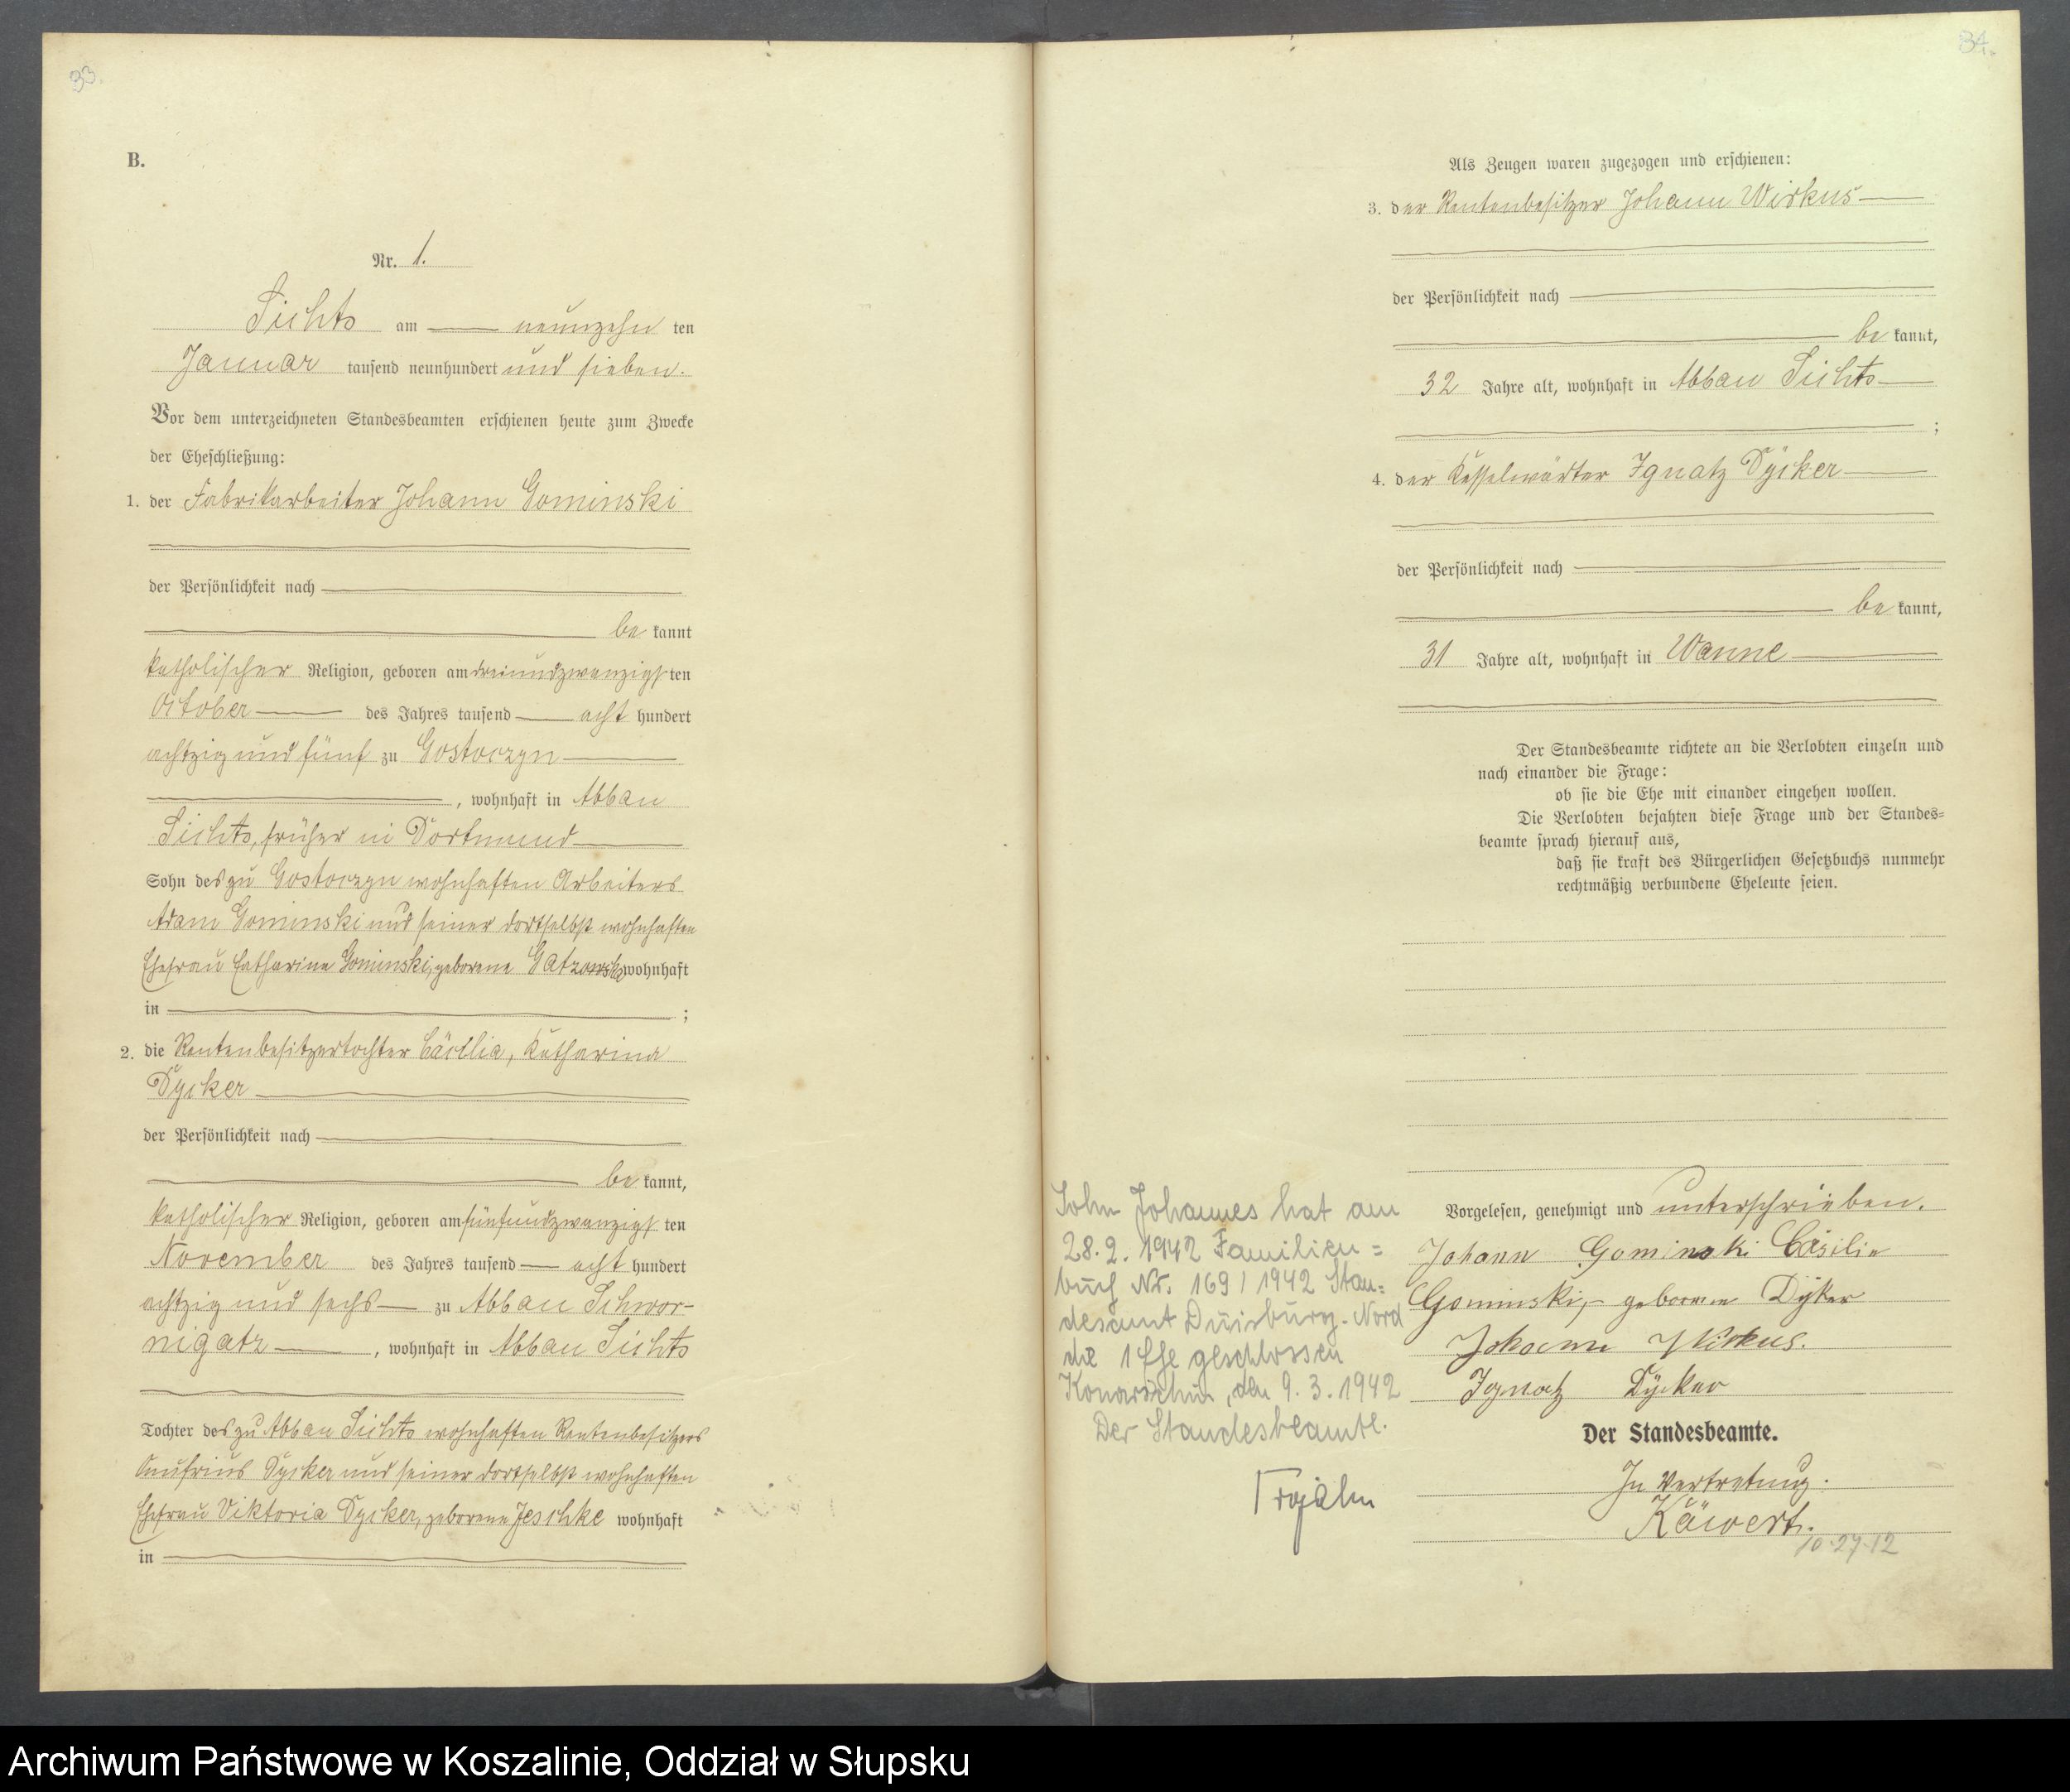 33.
B.
Nr. 1.
Lichts am neunzehn ten
Januar tausend neunhundert und sieben.
Vor dem unterzeichneten Standesbeamten erschienen heute zum Zwecke
der Eheschließung:
1. der Fabrikarbeiter Johann Gominski
der Persönlichkeit nach
be kannt
katholischer Religion, geboren am dreiundzwanzigs ten
October des Jahres tausend acht hundert
achtzig und fünf zu Gostoczyn
, wohnhaft in Abbau
Sichts, früher in Dortmund
Sohn des zu Gostoczyn wohnhaften Arbeiters
Adam Gominski und seiner dortselbst wohnhaften
Ehefrau Catharina Gominski, geborene wohnhaft
in ;
2. die Rentenbesitzertochter Cäcilia, Katharina
Dycker
der Persönlichkeit nach
be kannt,
katholischer Religion, geboren am fünfundzwanzigs ten
November des Jahres tausend acht hundert
achtzig und sechs zu Abbau Schwor-
nigatz , wohnhaft in Abbau Sichts
Tochter des zu Abbau Sichts wohnhaften Rentenbesitzers
Onufrius Dycker und seiner dortselbst wohnhaften
Ehefrau Viktoria Dycker, geborene Jeschke wohnhaft
in
34.
Als Zeugen waren zugezogen und erschienen:
3. der Rentenbesitzer Johann Wirkus
der Persönlichkeit nach
be kannt,
32 Jahre alt, wohnhaft in Abbau Sichts
;
4. der Kesselwärter Ignatz Dÿcker
der Persönlichkeit nach
be kannt,
31 Jahre alt, wohnhaft in Wanne
Der Standesbeamte richtete an die Verlobten einzeln und
nach einander die Frage:
ob sie die Ehe mit einander eingehen wollen.
Die Verlobten bejahten diese Frage und der Standes=
beamte sprach hierauf aus,
daß sie kraft des Bürgerlichen Gesetzbuchs nunmehr
rechtmäßig verbundene Eheleute seien.
Vorgelesen, genehmigt und unterschrieben.
Johann Gominski Cäsilie
Gominski, geborene Dÿker
Johann Wirkus.
Ignatz Dÿcker
Der Standesbeamte.
In Vertretung:
Käwert.
10.27.12
Sohn Johannes hat am
28.2.1942 Familien=
buch Nr. 169/1942 Stan=
desamt Duisburg-Nord
die 1 Ehe geschlossen
Konarschin, den 9.3.1942
Der Standesbeamte.
Archiwum Państwowe w Koszalinie, Oddział w Słupsku